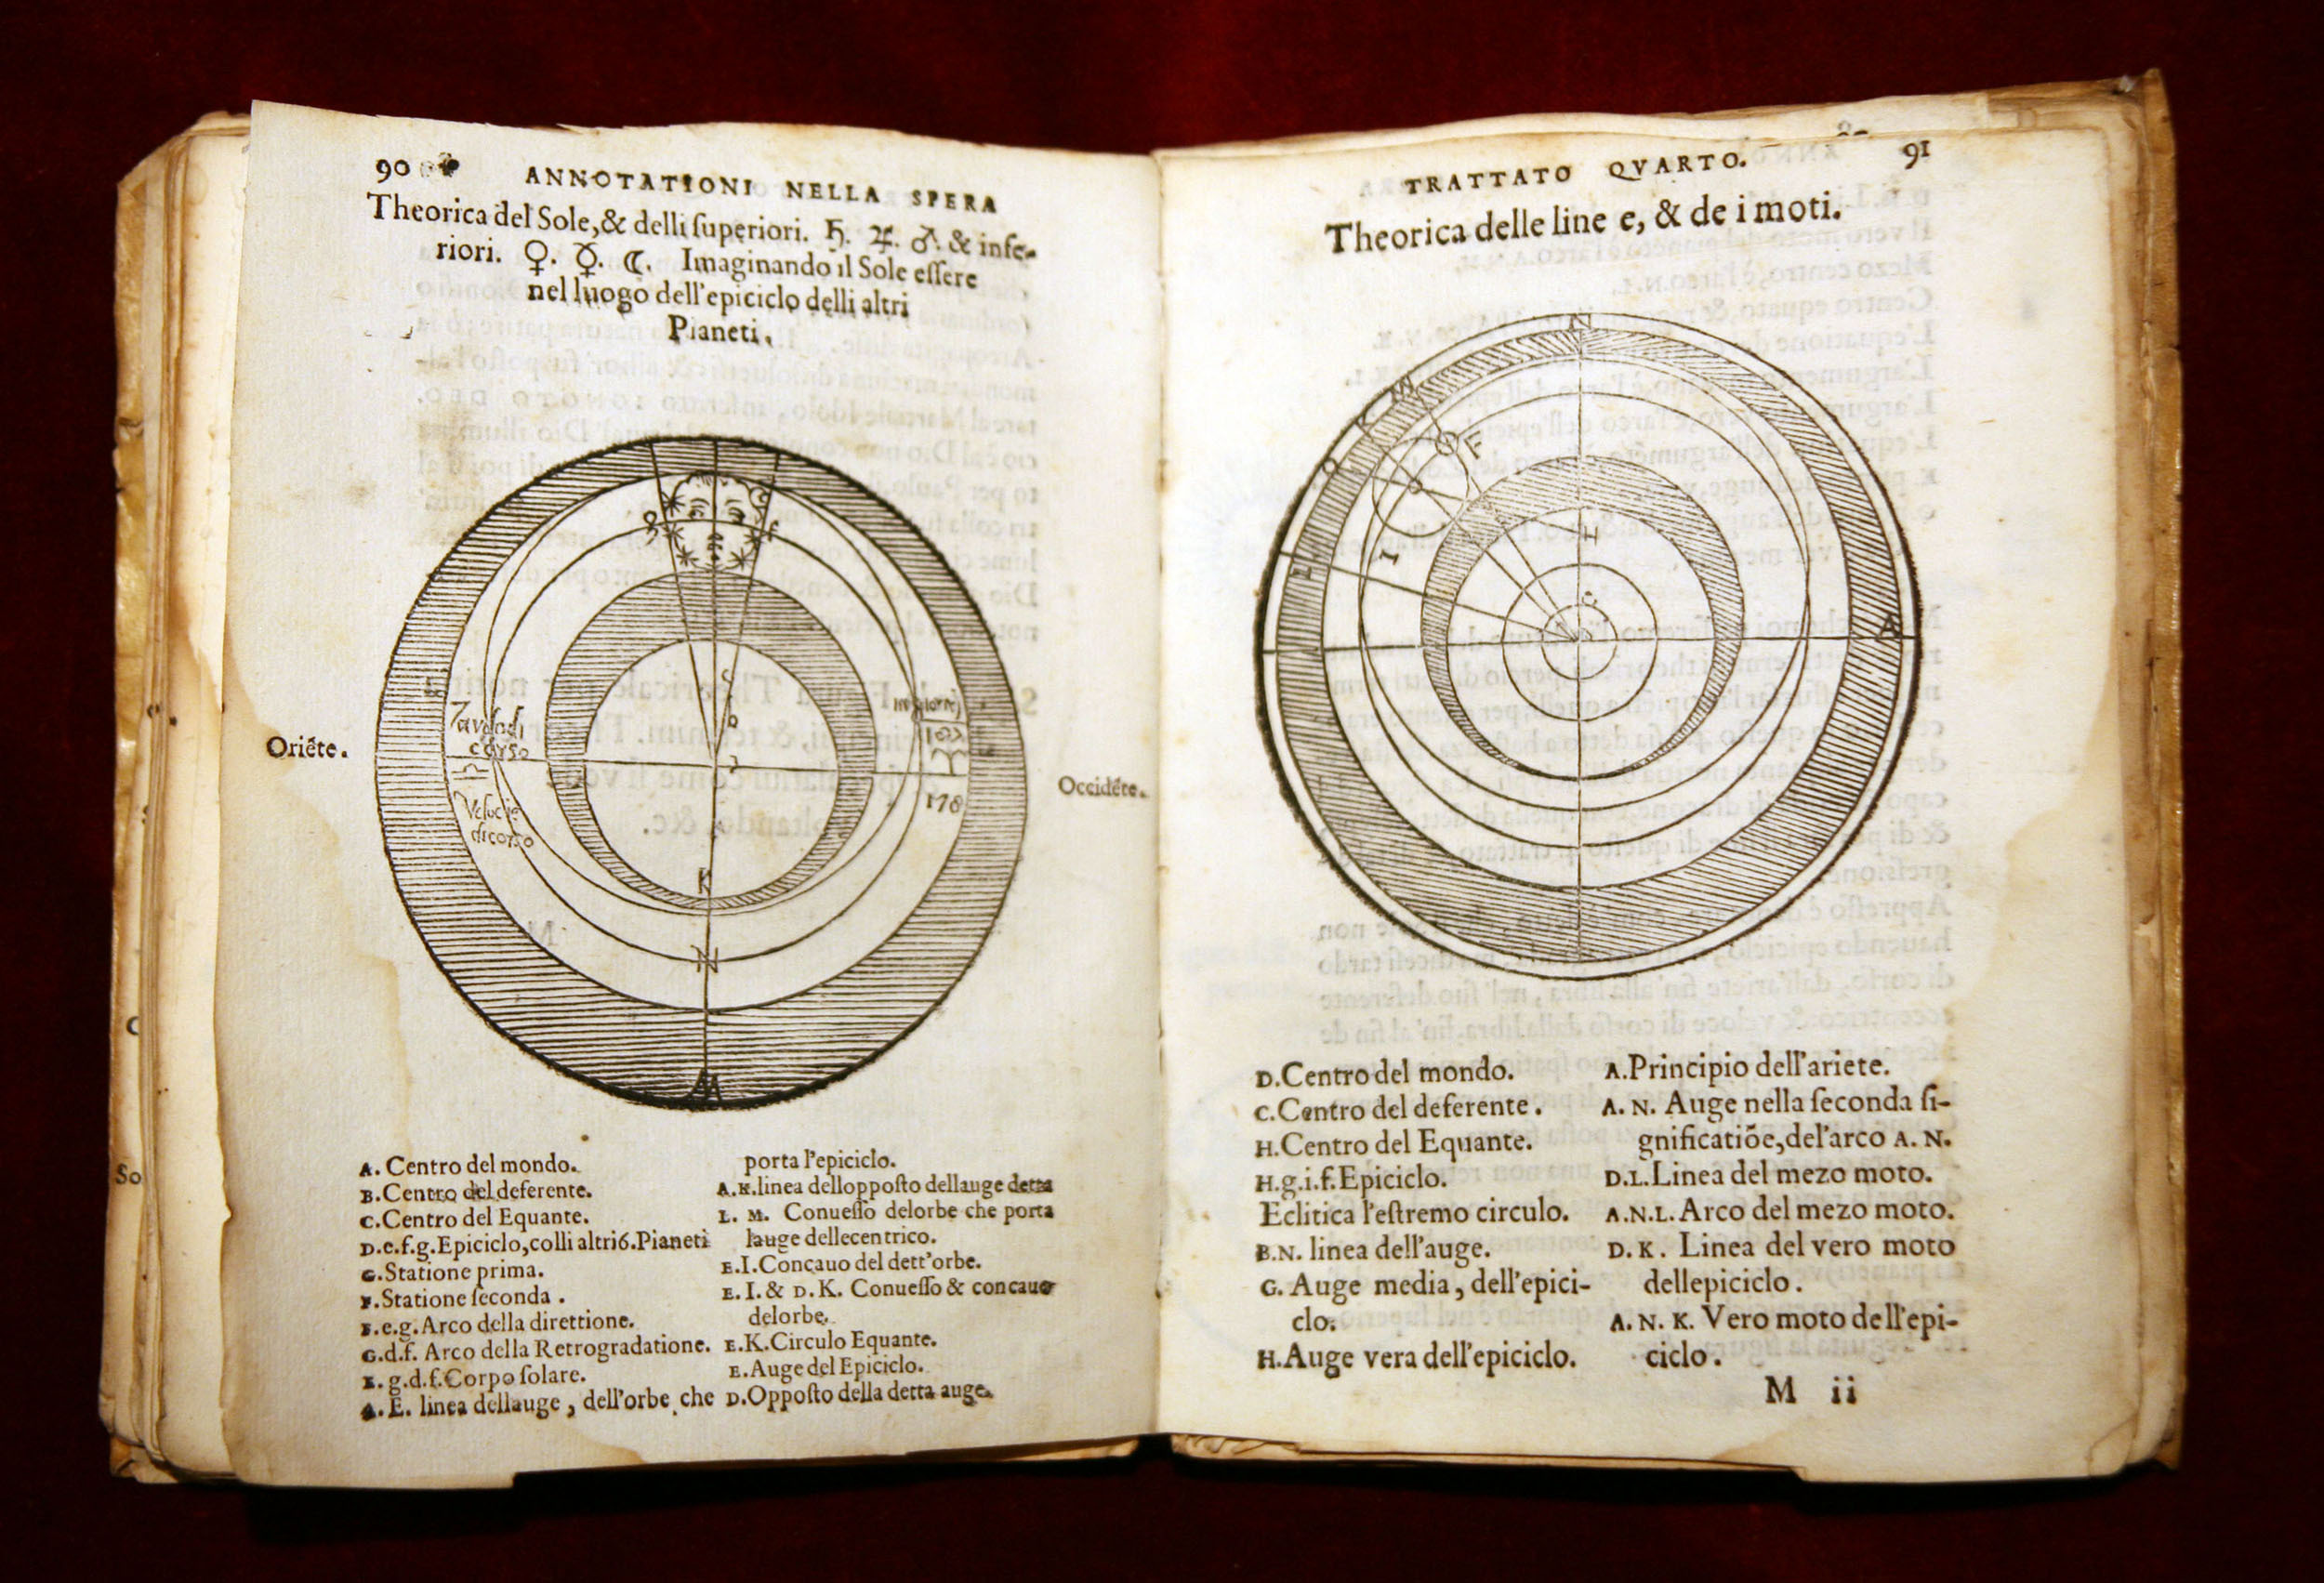 90
ANNOTATIONI NELLA SPERA
Theorica del Sole, & delli ſuperiori. ♄. ♃. ♂. & infe-
riori. ♀. ☿. ☾. Imaginando il Sole eſſere
nel luogo dell'epiciclo delli altri
Pianeti.
G
F
C
B
Tardo di
corso
♎
Oriēte.
182
♈
178
Occidēte.
Velocita
di corso
K
N
L
M
A. Centro del mondo.
B. Centro del deferente.
C. Centro del Equante.
D.e.f.g. Epiciclo, colli altri 6. Pianeti
G. Statione prima.
F. Statione ſeconda.
F.e.g. Arco della direttione.
G.d.f. Arco della Retrogradatione.
E. g.d.f. Corpo ſolare.
A. E. linea dellauge, dell'orbe che
porta l'epiciclo.
A.K. linea dellopposto dellauge detta
L. M. Conueſſo delorbe che porta
lauge dellecentrico.
E.I. Concauo del dett'orbe.
E. I. & D. K. Conueſſo & concauo
delorbe.
E.K. Circulo Equante.
E. Auge del Epiciclo.
D. Oppoſto della detta auge.
TRATTATO QVARTO.
91
Theorica delle line e, & de i moti.
N
F
I
H
C
A
D. Centro del mondo.
C. Centro del deferente.
H. Centro del Equante.
H.g.i.f. Epiciclo.
Eclitica l'eſtremo circulo.
B.N. linea dell'auge.
G. Auge media, dell'epici-
clo.
H. Auge vera dell'epiciclo.
A. Principio dell'ariete.
A. N. Auge nella ſeconda ſi-
gnificatiōe, del'arco A. N.
D.L. Linea del mezo moto.
A.N.L. Arco del mezo moto.
D. K. Linea del vero moto
dellepiciclo.
A. N. K. Vero moto dell'epi-
ciclo.
M ii
So